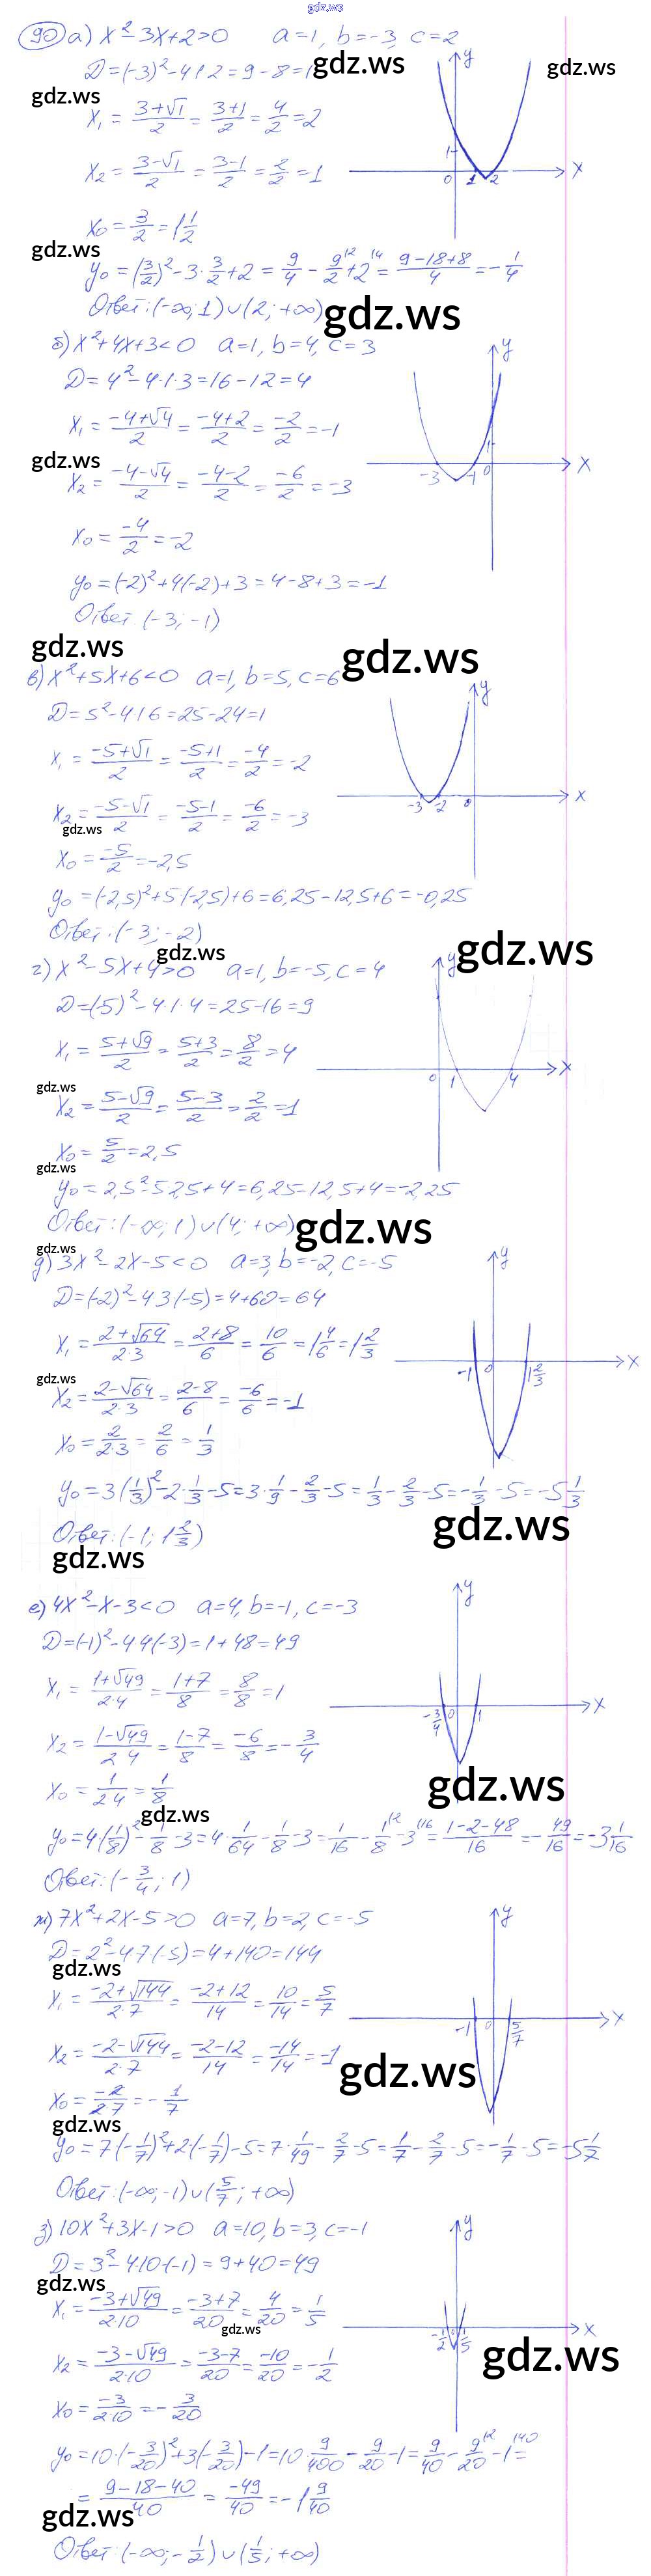 gdz.ws
90 а) x² - 3x + 2 > 0   a = 1, b = -3, c = 2
D = (-3)² - 4·1·2 = 9 - 8 = 1
gdz.ws
gdz.ws
gdz.ws
x₁ = (3+√1)/2 = (3+1)/2 = 4/2 = 2
x₂ = (3-√1)/2 = (3-1)/2 = 2/2 = 1
x₀ = 3/2 = 1 1/2
gdz.ws
y₀ = (3/2)² - 3·3/2 + 2 = 9/4 - 9/2 + 2 = (9-18+8)/4 = -1/4
Ответ: (-∞; 1) ∪ (2; +∞)
gdz.ws
y
1
0 1 2 x
б) x² + 4x + 3 < 0   a = 1, b = 4, c = 3
D = 4² - 4·1·3 = 16 - 12 = 4
x₁ = (-4+√4)/2 = (-4+2)/2 = -2/2 = -1
gdz.ws
x₂ = (-4-√4)/2 = (-4-2)/2 = -6/2 = -3
x₀ = -4/2 = -2
y₀ = (-2)² + 4(-2) + 3 = 4 - 8 + 3 = -1
Ответ: (-3; -1)
y
1
-3 -1 0 x
gdz.ws
gdz.ws
в) x² + 5x + 6 < 0   a = 1, b = 5, c = 6
D = 5² - 4·1·6 = 25 - 24 = 1
x₁ = (-5+√1)/2 = (-5+1)/2 = -4/2 = -2
x₂ = (-5-√1)/2 = (-5-1)/2 = -6/2 = -3
gdz.ws
x₀ = -5/2 = -2,5
y₀ = (-2,5)² + 5·(-2,5) + 6 = 6,25 - 12,5 + 6 = -0,25
Ответ: (-3; -2)
y
-3 -2 0 x
gdz.ws
gdz.ws
г) x² - 5x + 4 > 0   a = 1, b = -5, c = 4
D = (-5)² - 4·1·4 = 25 - 16 = 9
x₁ = (5+√9)/2 = (5+3)/2 = 8/2 = 4
gdz.ws
x₂ = (5-√9)/2 = (5-3)/2 = 2/2 = 1
x₀ = 5/2 = 2,5
gdz.ws
y₀ = 2,5² - 5·2,5 + 4 = 6,25 - 12,5 + 4 = -2,25
Ответ: (-∞; 1) ∪ (4; +∞)
gdz.ws
y
0 1 4 x
gdz.ws
д) 3x² - 2x - 5 < 0   a = 3, b = -2, c = -5
D = (-2)² - 4·3·(-5) = 4 + 60 = 64
x₁ = (2+√64)/(2·3) = (2+8)/6 = 10/6 = 1 4/6 = 1 2/3
gdz.ws
x₂ = (2-√64)/(2·3) = (2-8)/6 = -6/6 = -1
x₀ = 2/(2·3) = 2/6 = 1/3
y₀ = 3(1/3)² - 2·1/3 - 5 = 3·1/9 - 2/3 - 5 = 1/3 - 2/3 - 5 = -1/3 - 5 = -5 1/3
Ответ: (-1; 1 2/3)
y
-1 0 1 2/3 x
gdz.ws
gdz.ws
е) 4x² - x - 3 < 0   a = 4, b = -1, c = -3
D = (-1)² - 4·4·(-3) = 1 + 48 = 49
x₁ = (1+√49)/(2·4) = (1+7)/8 = 8/8 = 1
x₂ = (1-√49)/(2·4) = (1-7)/8 = -6/8 = -3/4
x₀ = 1/(2·4) = 1/8
gdz.ws
gdz.ws
y₀ = 4(1/8)² - 1/8 - 3 = 4·1/64 - 1/8 - 3 = 1/16 - 1/8 - 3 = (1-2-48)/16 = -49/16 = -3 1/16
Ответ: (-3/4; 1)
y
-3/4 0 1 x
ж) 7x² + 2x - 5 > 0   a = 7, b = 2, c = -5
D = 2² - 4·7·(-5) = 4 + 140 = 144
gdz.ws
x₁ = (-2+√144)/(2·7) = (-2+12)/14 = 10/14 = 5/7
x₂ = (-2-√144)/(2·7) = (-2-12)/14 = -14/14 = -1
gdz.ws
x₀ = -2/(2·7) = -1/7
gdz.ws
y₀ = 7(-1/7)² + 2·(-1/7) - 5 = 7·1/49 - 2/7 - 5 = 1/7 - 2/7 - 5 = -1/7 - 5 = -5 1/7
Ответ: (-∞; -1) ∪ (5/7; +∞)
y
-1 0 5/7 x
з) 10x² + 3x - 1 > 0   a = 10, b = 3, c = -1
D = 3² - 4·10·(-1) = 9 + 40 = 49
gdz.ws
x₁ = (-3+√49)/(2·10) = (-3+7)/20 = 4/20 = 1/5
gdz.ws
x₂ = (-3-√49)/(2·10) = (-3-7)/20 = -10/20 = -1/2
gdz.ws
x₀ = -3/(2·10) = -3/20
y₀ = 10·(-3/20)² + 3(-3/20) - 1 = 10·9/400 - 9/20 - 1 = 9/40 - 9/20 - 1 =
= (9-18-40)/40 = -49/40 = -1 9/40
gdz.ws
Ответ: (-∞; -1/2) ∪ (1/5; +∞)
y
-1/2 0 1/5 x